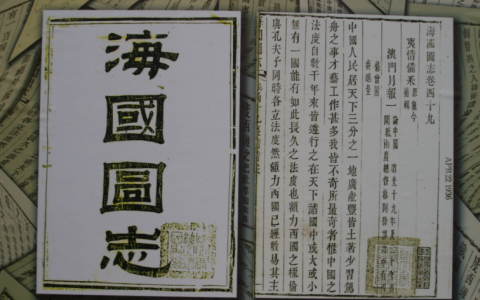 海國圖志
海國圖志卷四十九
夷情備采
澳門月報一
論中國
中國人民居天下三分之一地廣產豐皆土著少習駕
舟之事才藝工作甚多我皆不奇所最奇者惟中國之
法度自數千年來皆遵行之在天下諸國中或大或小
無有一國能有如此長久之法度也額力西國之
與孔夫子同時各立法度然額力西國已經數易其主
APR 22 1936